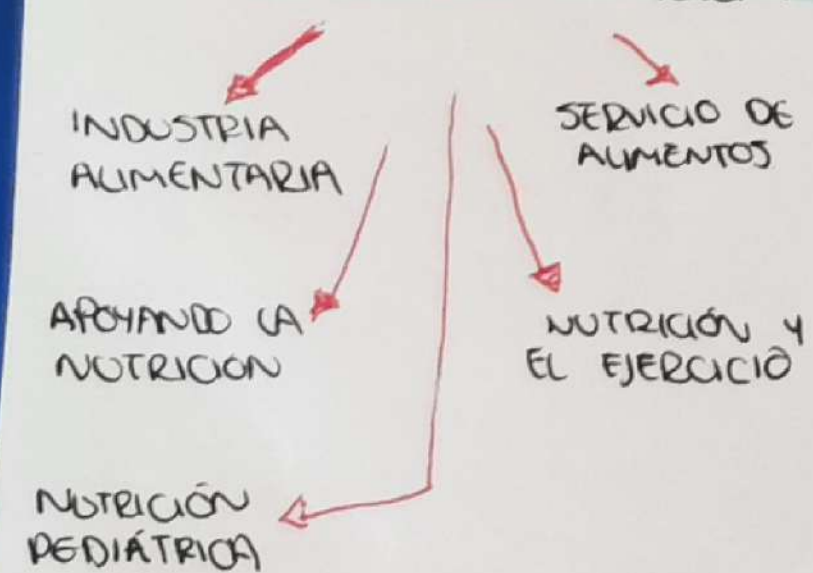 INDUSTRIA
ALIMENTARIA
SERVICIO DE
ALIMENTOS
APOYANDO LA
NUTRICION
NUTRICIÓN Y
EL EJERCICIO
NUTRICIÓN
PEDIÁTRICA